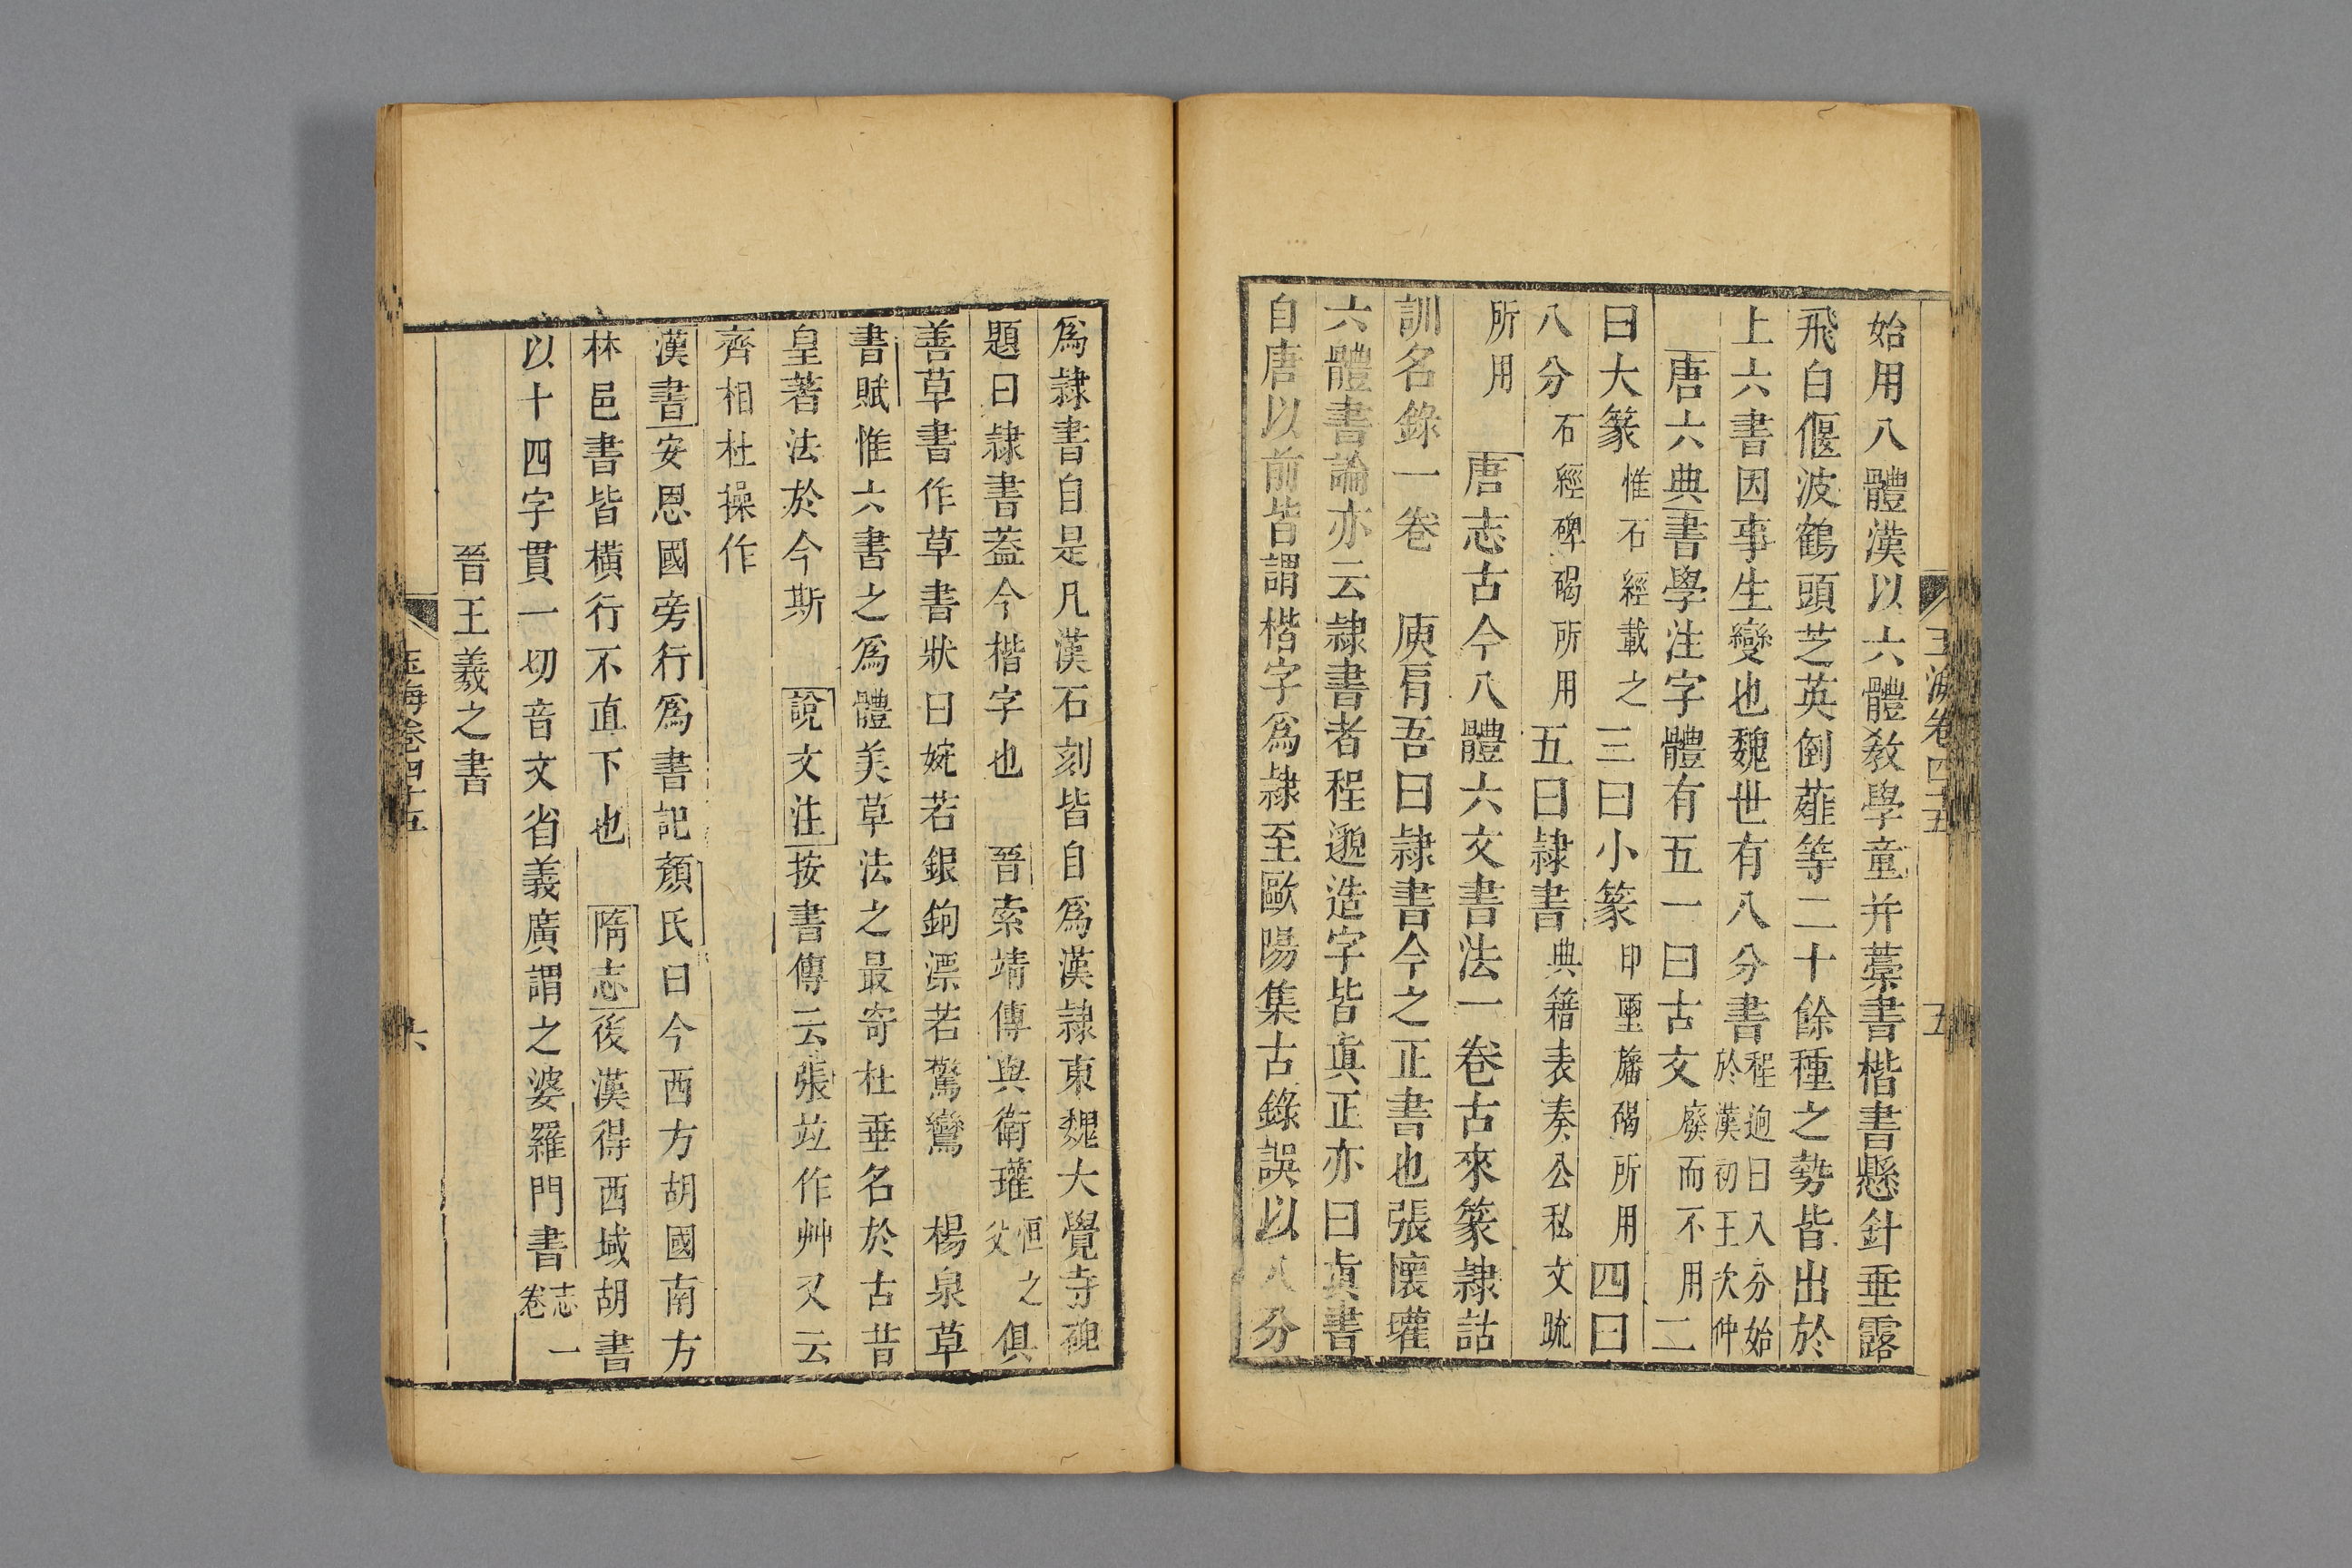 玉海卷四十五
五
始用八體漢以六體教學童并藁書楷書懸針垂露
飛白偃波鶴頭芝英倒薤等二十餘種之勢皆出於
上六書因事生變也魏世有八分書程逈曰八分始於漢初王次仲
唐六典書學注字體有五一曰古文廢而不用二
曰大篆惟石經載之三曰小篆印璽旛碣所用四曰
八分石經碑碣所用五曰隷書典籍表奏公私文䟽
所用唐志古今八體六文書法一卷古來篆隷詁
訓名錄一卷庾肩吾曰隷書今之正書也張懷瓘
六體書論亦云隷書者程邈造字皆眞正亦曰眞書
自唐以前皆謂楷字爲隷至歐陽集古錄誤以八分
爲隷書自是凡漢石刻皆自爲漢隷東魏大覺寺碑
題曰隷書葢今楷字也晉索靖傳與衛瓘恒之父俱
善草書作草書狀曰婉若銀鉤漂若驚鸞楊泉草
書賦惟六書之爲體美草法之最奇杜垂名於古昔
皇著法於今斯說文注按書傳云張竝作艸又云
齊相杜操作
漢書安息國旁行爲書記顏氏曰今西方胡國南方
林邑書皆橫行不直下也隋志後漢得西域胡書
以十四字貫一切音文省義廣謂之婆羅門書志一卷
晉王羲之書
玉海卷四十五
六